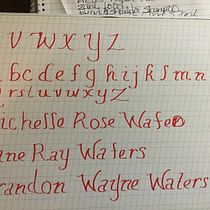 V W X Y Z
b c d e f g h i j k s m n
r s t u v w x y z
ichelle Rose Wafeo
ane Ray Waters
randon Wayne Waters